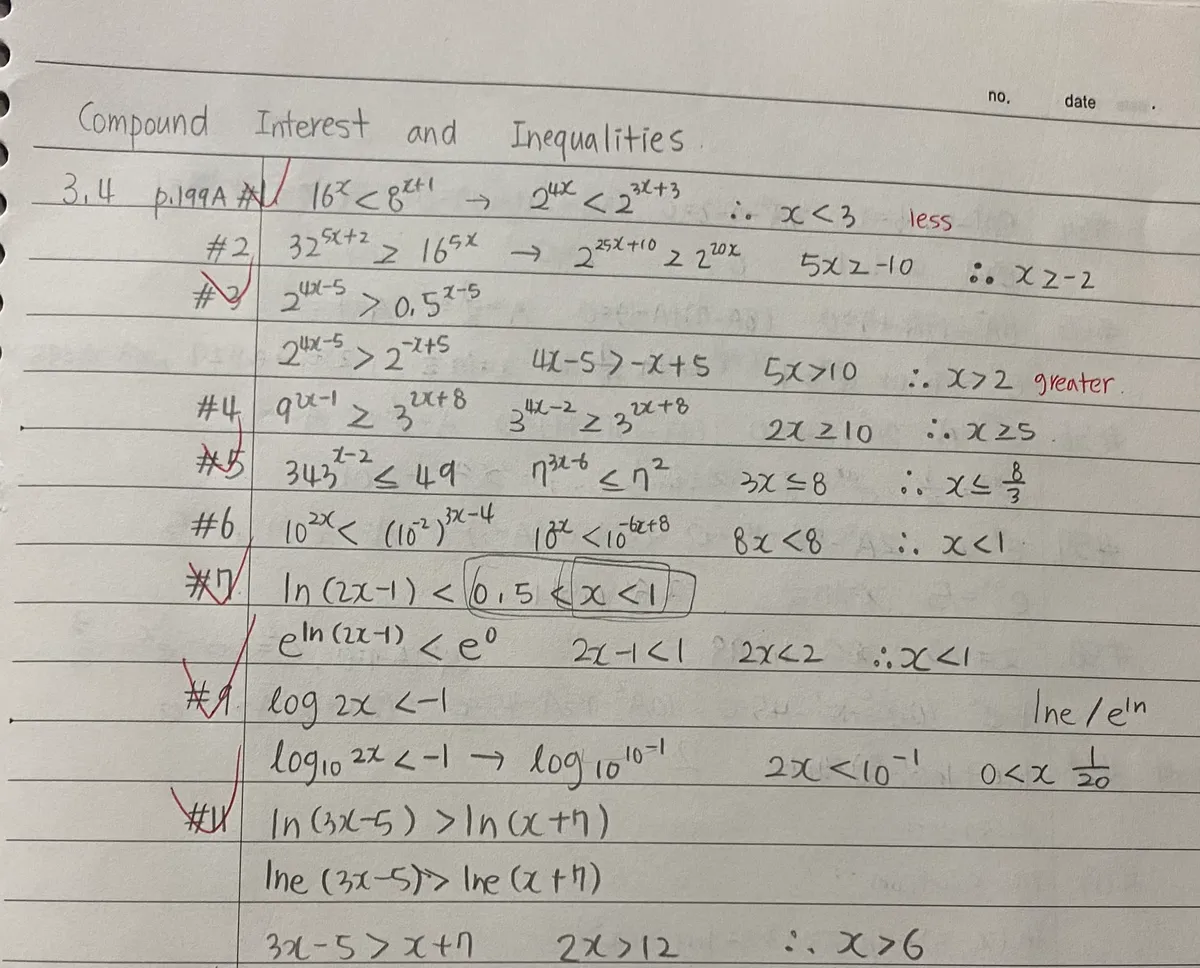 no. date
Compound Interest and Inequalities.
3.4 p.199A #1 16^x < 8^(x+1) → 2^(4x) < 2^(3x+3) ∴ x < 3 less
#2 32^(5x+2) ≥ 16^(5x) → 2^(25x+10) ≥ 2^(20x) 5x ≥ -10 ∴ x ≥ -2
#3 2^(4x-5) > 0.5^(x-5)
2^(4x-5) > 2^(-x+5) 4x-5 > -x+5 5x > 10 ∴ x > 2 greater.
#4 9^(2x-1) ≥ 3^(2x+8) 3^(4x-2) ≥ 3^(2x+8) 2x ≥ 10 ∴ x ≥ 5.
#5 343^(x-2) ≤ 49 7^(3x-6) ≤ 7^2 3x ≤ 8 ∴ x ≤ 8/3
#6 10^(2x) < (10^(-2))^(3x-4) 10^(2x) < 10^(-6x+8) 8x < 8 ∴ x < 1
#7 ln(2x-1) < 0.5 < x < 1
e^(ln(2x-1)) < e^0 2x-1 < 1 2x < 2 ∴ x < 1
#9 log 2x < -1 lne / e^(ln)
log₁₀ 2x < -1 → log₁₀ 10^(-1) 2x < 10^(-1) 0 < x 1/20
#11 ln(3x-5) > ln(x+7)
lne (3x-5) > lne (x+7)
3x-5 > x+7 2x > 12 ∴ x > 6